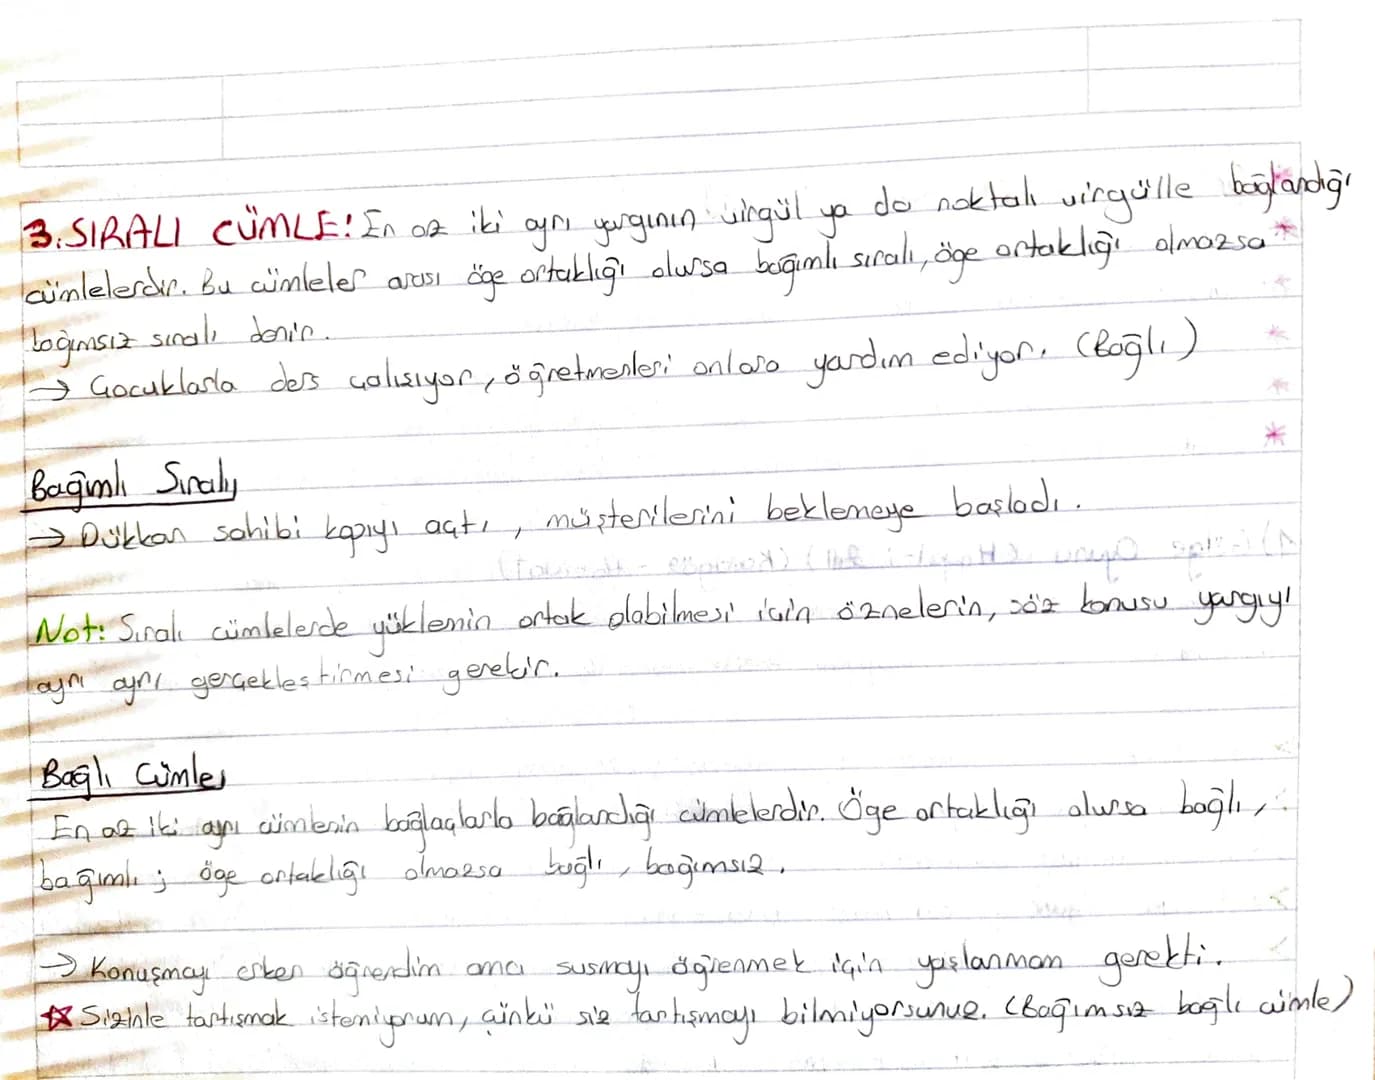 3.SIRALI CÜMLE! En az iki ayrı yargının virgül ya da noktalı virgülle bağlandığı
cümlelerdir. Bu cümleler arası öge ortaklığı olursa bağımlı sıralı, öge ortaklığı olmazsa
bağımsız sıralı denir.
→ Çocuklarla ders çalışıyor, öğretmenleri onlara yardım ediyor. (Bağlı)
Bağımlı Sıralı
→ Dükkan sahibi kapıyı açtı, müşterilerini beklemeye başladı.
Not: Sıralı cümlelerde yüklemin ortak olabilmesi için öznelerin, söz konusu yargıyı
ayrı ayrı gerçekleştirmesi gerekir.
Bağlı Cümle
En az iki ayrı cümlenin bağlaçlarla bağlandığı cümlelerdir. Öge ortaklığı olursa bağlı,
bağımlı; öge ortaklığı olmazsa bağlı, bağımsız.
→ Konuşmayı erken öğrendim ama susmayı öğrenmek için yaşlanmam gerekti.
☆ Sizinle tartışmak istemiyorum, çünkü siz tartışmayı bilmiyorsunuz. (Bağımsız bağlı cümle)